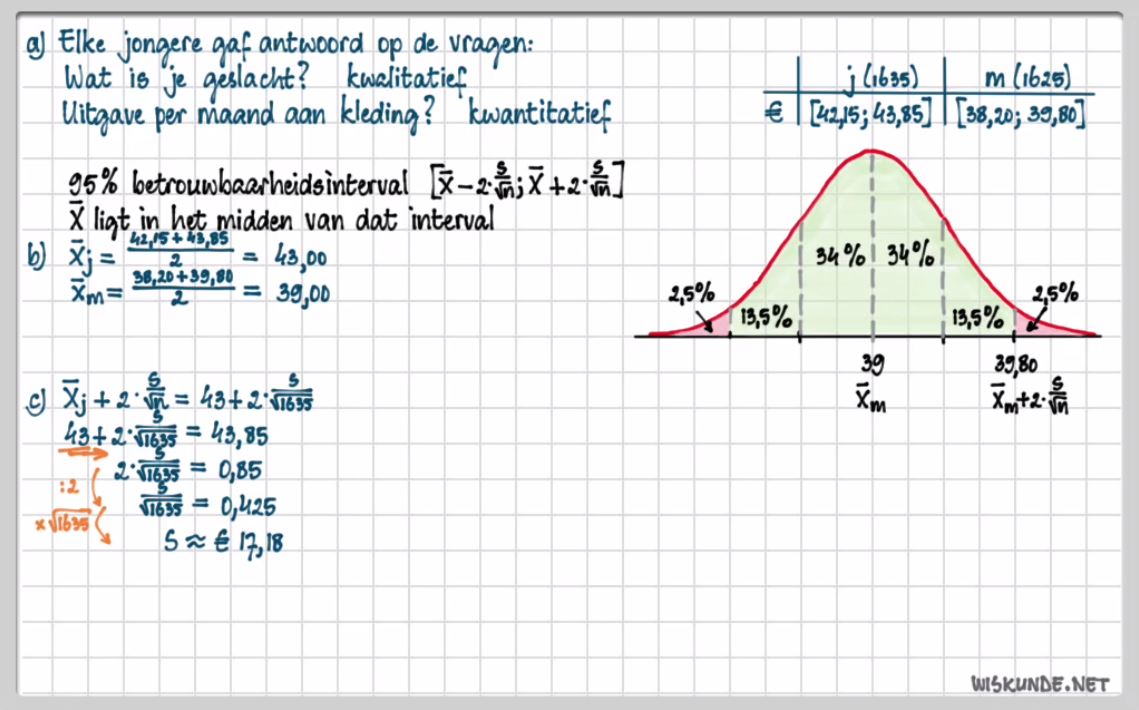 a) Elke jongere gaf antwoord op de vragen:
Wat is je geslacht? kwalitatief
Uitgave per maand aan kleding? kwantitatief
j (1635) m (1625)
€ [42,15; 43,85] [38,20; 39,80]
95% betrouwbaarheidsinterval [x̄ − 2·s/√n; x̄ + 2·s/√n]
x̄ ligt in het midden van dat interval
b) x̄j = (42,15 + 43,85)/2 = 43,00
x̄m = (38,20 + 39,80)/2 = 39,00
34% 34%
2,5% 2,5%
13,5% 13,5%
39 39,80
x̄m x̄m + 2·s/√n
c) x̄j + 2·s/√n = 43 + 2·s/√1635
43 + 2·s/√1635 = 43,85
2·s/√1635 = 0,85
:2
s/√1635 = 0,425
×√1635
s ≈ € 17,18
WISKUNDE.NET